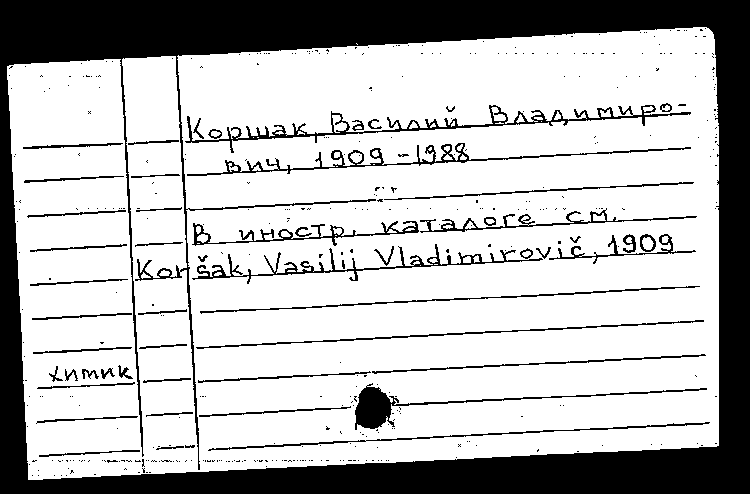 Коршак, Василий Владимиро-
вич, 1909-1988
В иностр. каталоге см.
Koršak, Vasilij Vladimirovič, 1909
химик